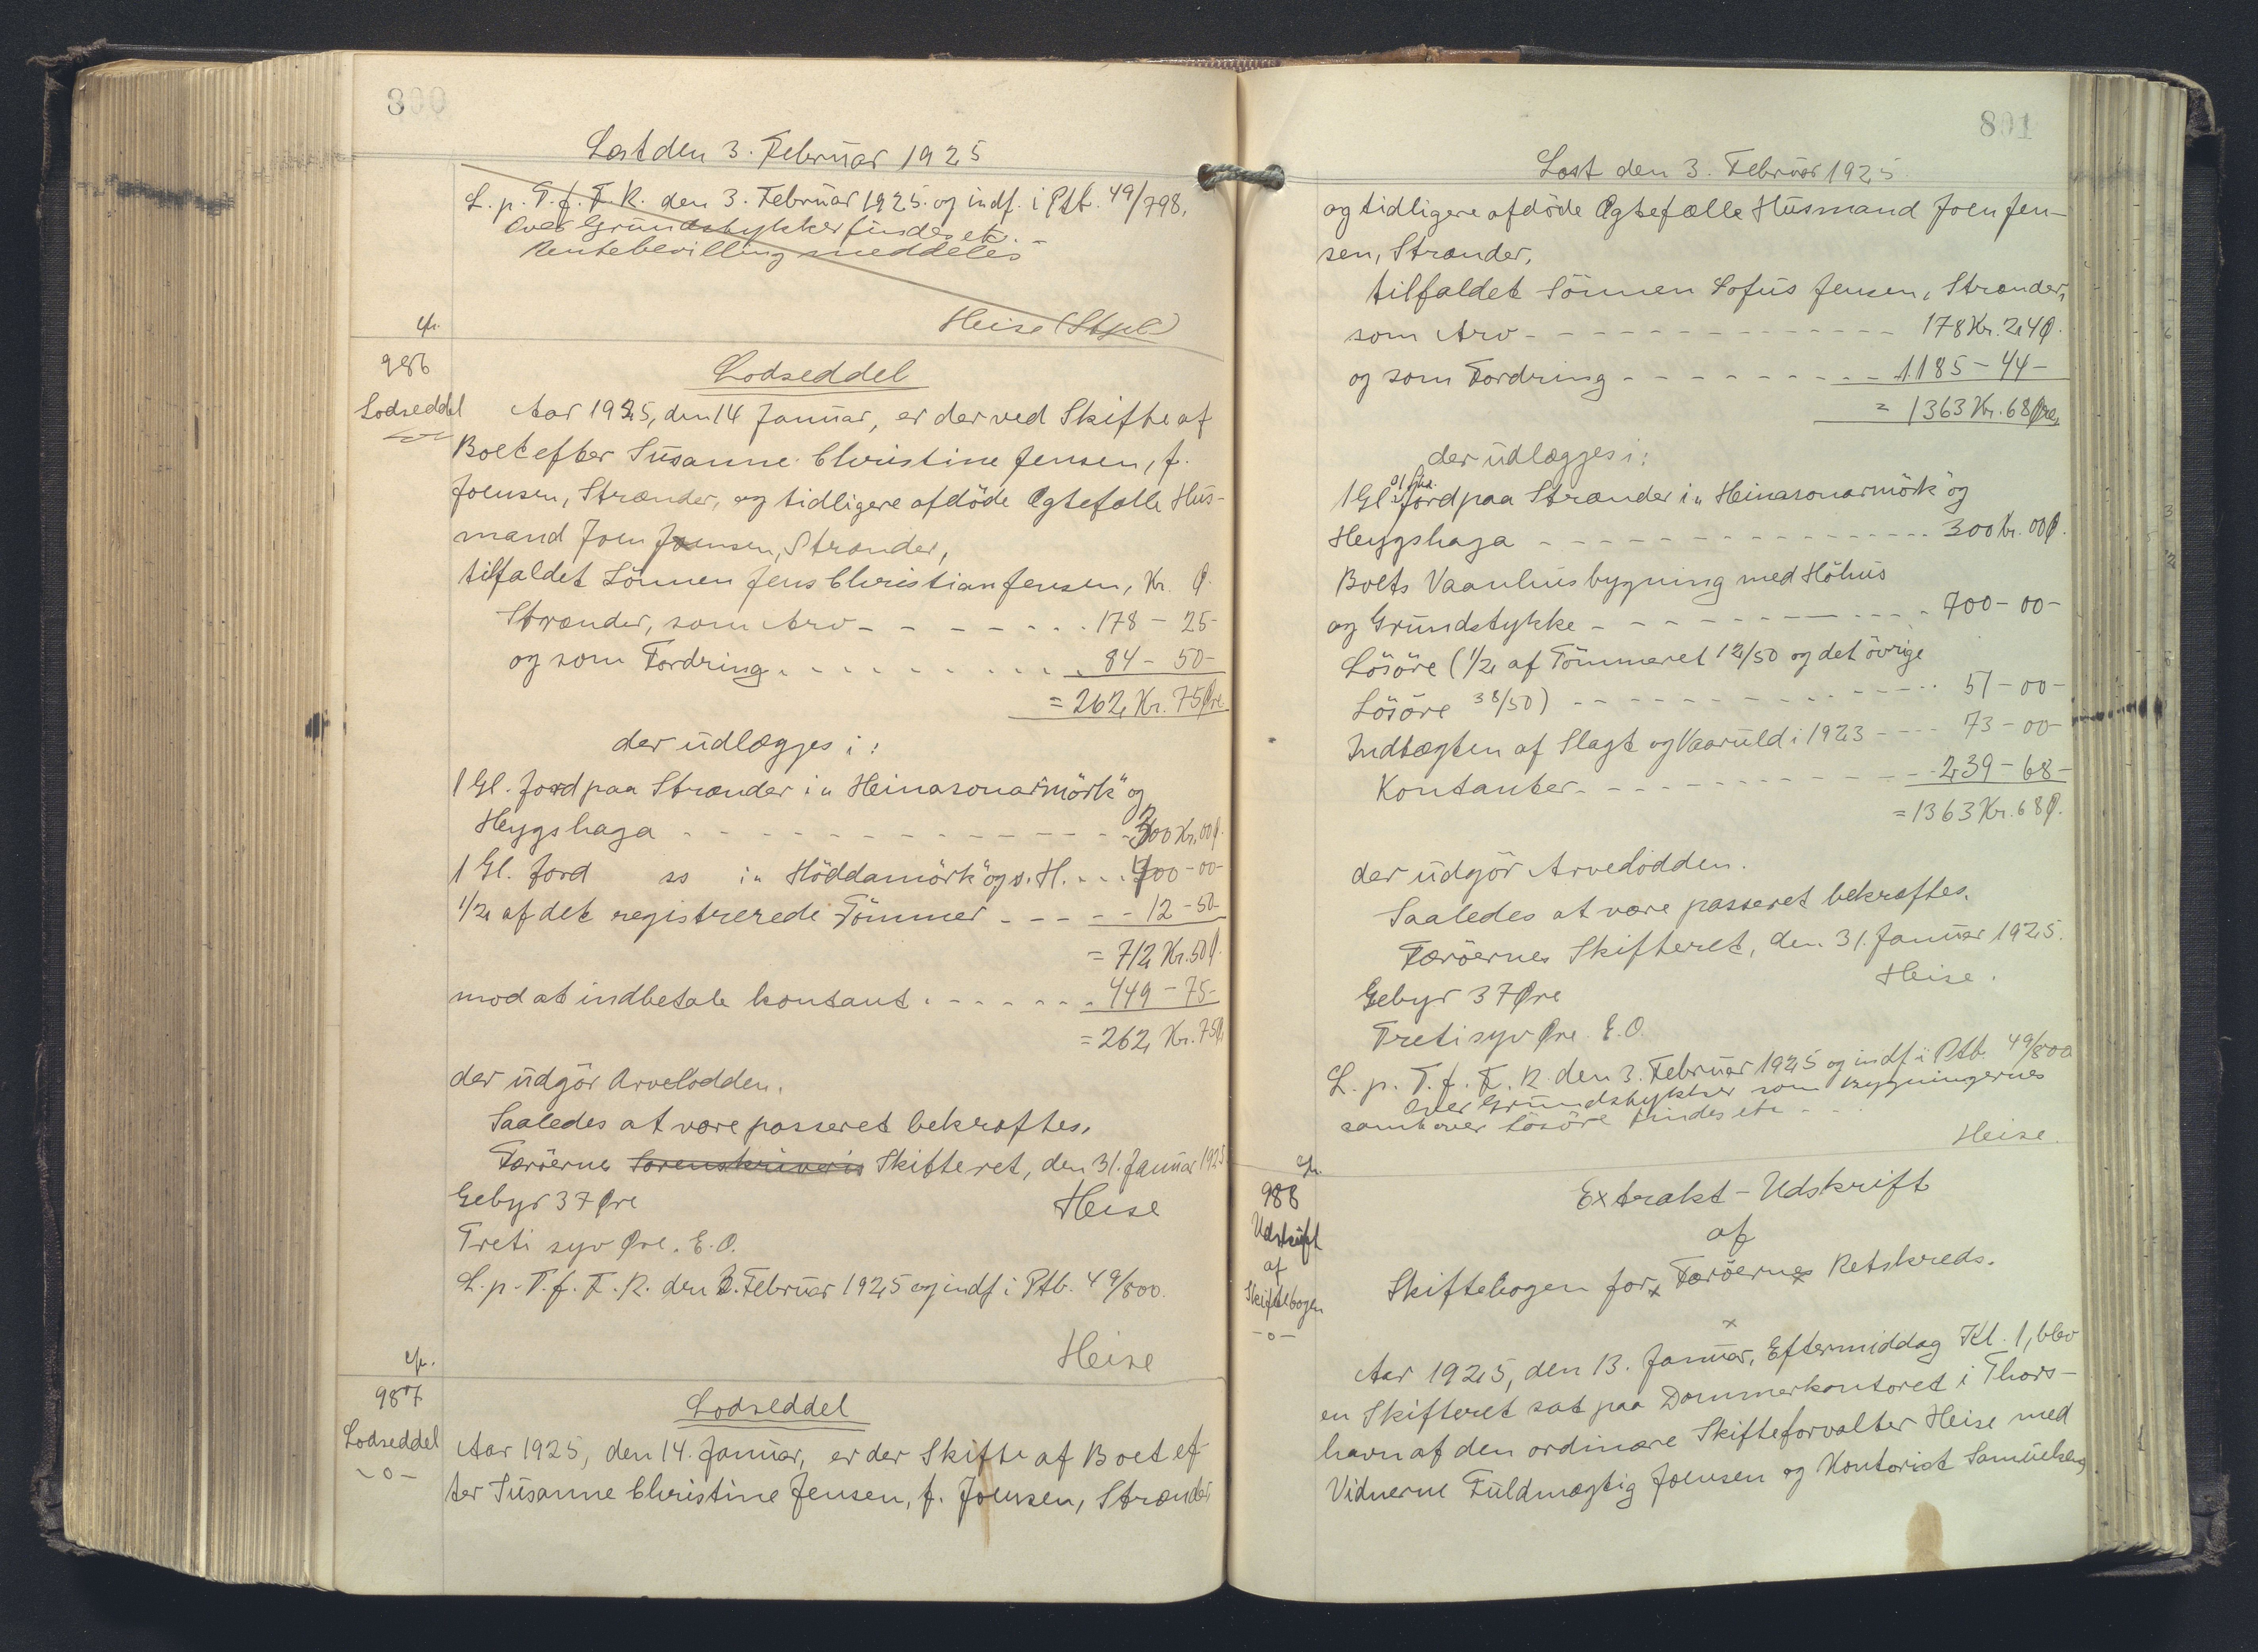 800
Læst den 3. Februar 1925
L. p. T. f. F. R. den 3. Februar 1925 og indf. i Ptb. 49/798.
Over Grundstykker findes etc. -
Rentebevilling meddeles
Heise (Stpl)
986
Lodseddel
Lodseddel
Aar 1925, den 14 Januar, er der ved Skifte af
Boet efter Susanne Christine Jensen, f.
Joensen, Strænder, og tidligere afdöde Ægtefælle Hus-
mand Joen Jensen, Strænder,
tilfaldet Sönnen Jens Christian Jensen, Kr. Ø.
Strænder, som Arv - - - - - - 178 - 25 -
og som Fordring - - - - - - - 84 - 50 -
= 262 Kr. 75 Øre
der udlægges i :
1 Gl. Jord paa Strænder i "Heinasonarmörk" og
Heygshaga - - - - - - - - - 300 Kr. 00 Ø.
1 Gl. Jord so i "Höddamörk" og s. H. - - - 400 - 00 -
1/2 af det registrerede Tömmer - - - - - 12 - 50 -
= 712 Kr. 50 Ø.
mod at indbetale kontant - - - - - - 449 - 75 -
= 262 Kr. 75 Ø.
der udgör Arvelodden.
Saaledes at være passeret bekræftes.
Færöernes Sorenskriveris Skifteret, den 31. Januar 1925
Gebyr 37 Øre Heise
Treti syv Øre. E. O.
L. p. T. f. F. R. den 3. Februar 1925 og indf i Ptb. 49/800.
Heise
987
Lodseddel
- o -
Lodseddel
Aar 1925, den 14. Januar, er der Skifte af Boet ef
ter Susanne Christine Jensen, f. Joensen, Strænder
801
Læst den 3. Februar 1925.
og tidligere afdöde Ægtefælle Husmand Joen Jen-
sen, Strænder,
tilfaldet Sönnen Sofus Jensen, Strænder,
som Arv - - - - - - - - - - 178 Kr. 24 Ø.
og som Fordring - - - - - - - - 1185 - 44 -
= 1363 Kr. 68 Øre,
der udlægges i :
1 Gl Jord paa Strænder i "Heinasonarmörk" og
Heygshaga - - - - - - - - - - 300 Kr. 00 Ø.
Boets Vaanhusbygning med Höhus
og Grundstykke - - - - - - - - - 700 - 00 -
Lösöre (1/2 af Tömmeret 12/50 og det övrige
Lösöre 38/50) - - - - - - - - - 51 - 00 -
Indtægten af Slagt og Vaaruld i 1923 - - - 73 - 00 -
Kontanter - - - - - - - - - 239 - 68 -
= 1363 Kr. 68 Ø.
der udgör Arvelodden.
Saaledes at være passeret bekræftes.
Færöernes Skifteret, den 31. Januar 1925.
Heise.
Gebyr 37 Øre
Tretisyv Øre. E. O.
L. p. T. f. F. R. den 3. Februar 1925 og indf i Ptb. 49/800
Over Grundstykker som Bygningernes
samt over lösöre findes etc - - -
Heise.
988
Udskrift
af
Skiftebogen
- o -
Extrakt - Udskrift
af
Skiftebogen for Færöernes Retskreds.
Aar 1925, den 13. Januar, Eftermiddag Kl. 1, blev
en Skifteret sat paa Dommerkontoret i Thors-
havn af den ordinære Skifteforvalter Heise med
Vidnerne Fuldmægtig Joensen og Kontorist Samuelsen